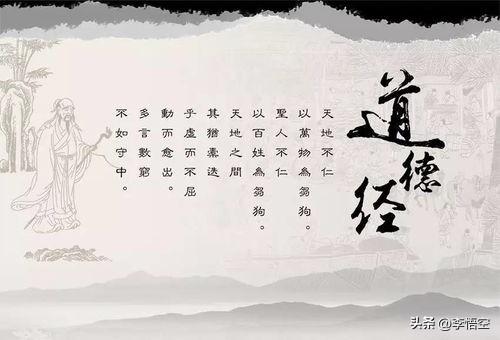 道德经
天地不仁
以萬物為芻狗。
聖人不仁
以百姓為芻狗。
天地之間
其猶橐迭
乎虛而不屈
動而愈出。
多言數窮
不如守中。
头条 @李悟空